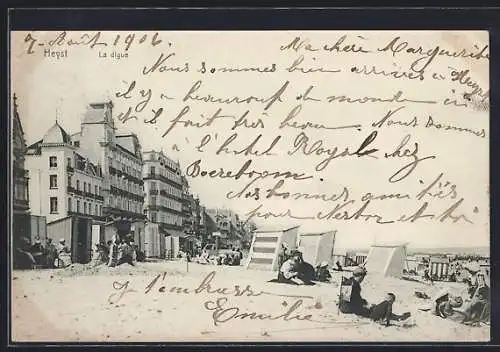 7 Août 1906
Heyst La digue
Ma chère Marguerite
Nous sommes bien arrivées à Heyst
il y a beaucoup de monde ici
il fait très beau. Nous sommes
à l'hotel Royal chez
Boereboom.
Nos bonnes amitiés
pour Nestor et toi
J'embrasse
Emilie